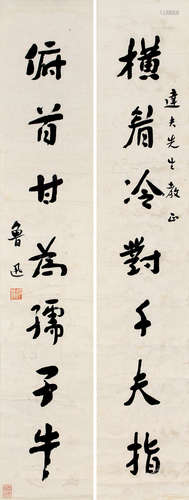 橫眉冷對千夫指
達夫先生教正
俯首甘為孺子牛
魯迅